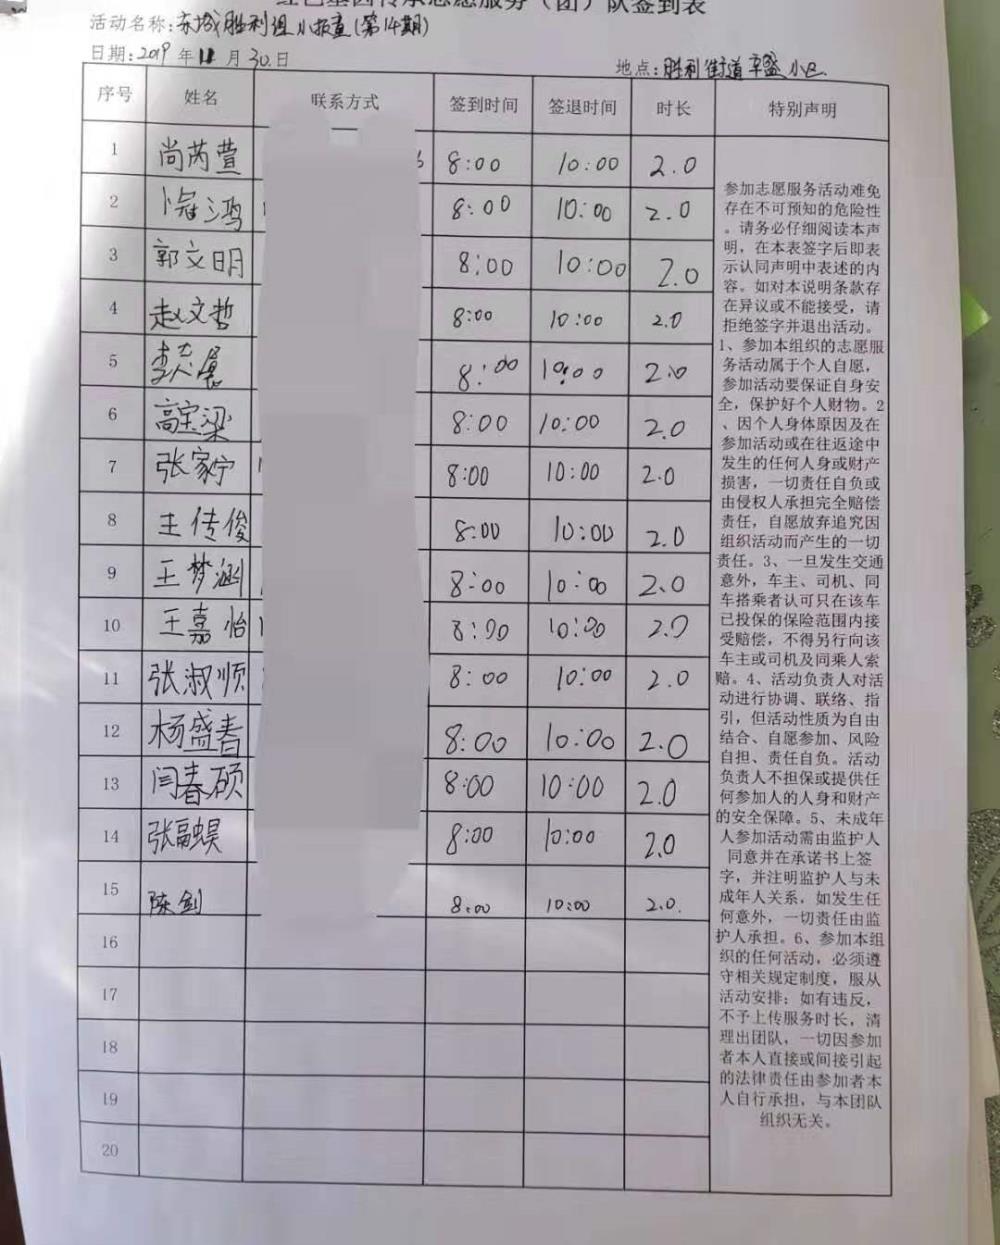 红色基因传承志愿服务（团）队签到表
活动名称：东城胜利组小报童(第14期)
日期：2019年11月30日
地点：胜利街道辛盛小区
序号 姓名 联系方式 签到时间 签退时间 时长 特别声明
1 尚芮萱 8:00 10:00 2.0
2 8:00 10:00 2.0
3 郭文明 8:00 10:00 2.0
4 赵文哲 8:00 10:00 2.0
5 8:00 10:00 2.0
6 高宝梁 8:00 10:00 2.0
7 张家宁 8:00 10:00 2.0
8 王传俊 8:00 10:00 2.0
9 王梦涵 8:00 10:00 2.0
10 王嘉怡 8:00 10:00 2.0
11 张淑顺 8:00 10:00 2.0
12 杨盛春 8:00 10:00 2.0
13 闫春硕 8:00 10:00 2.0
14 8:00 10:00 2.0
15 陈剑 8:00 10:00 2.0.
16
17
18
19
20
参加志愿服务活动难免
存在不可预知的危险性
。请务必仔细阅读本声
明，在本表签字后即表
示认同声明中表述的内
容。如对本说明条款存
在异议或不能接受，请
拒绝签字并退出活动。
1、参加本组织的志愿服
务活动属于个人自愿，
参加活动要保证自身安
全，保护好个人财物。2
、因个人身体原因及在
参加活动或在往返途中
发生的任何人身或财产
损害，一切责任自负或
由侵权人承担完全赔偿
责任，自愿放弃追究因
组织活动而产生的一切
责任。3、一旦发生交通
意外，车主、司机、同
车搭乘者认可只在该车
已投保的保险范围内接
受赔偿，不得另行向该
车主或司机及同乘人索
赔。4、活动负责人对活
动进行协调、联络、指
引，但活动性质为自由
结合、自愿参加、风险
自担、责任自负。活动
负责人不担保或提供任
何参加人的人身和财产
的安全保障。5、未成年
人参加活动需由监护人
同意并在承诺书上签
字，并注明监护人与未
成年人关系，如发生任
何意外，一切责任由监
护人承担。6、参加本组
织的任何活动，必须遵
守相关规定制度，服从
活动安排；如有违反，
不予上传服务时长，清
理出团队，一切因参加
者本人直接或间接引起
的法律责任由参加者本
人自行承担，与本团队
组织无关。